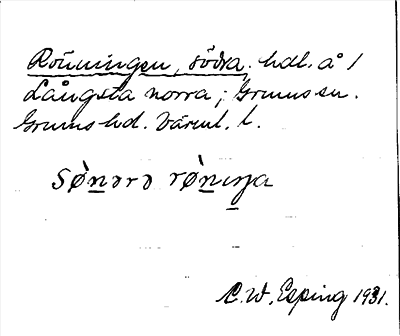 Rönningen, södra. hdl. å /
Långsta norra; Grums sn.
Grums hd. Värml. l.
Sø̀nərə rø̀nıŋa
C.W. Esping 1931.